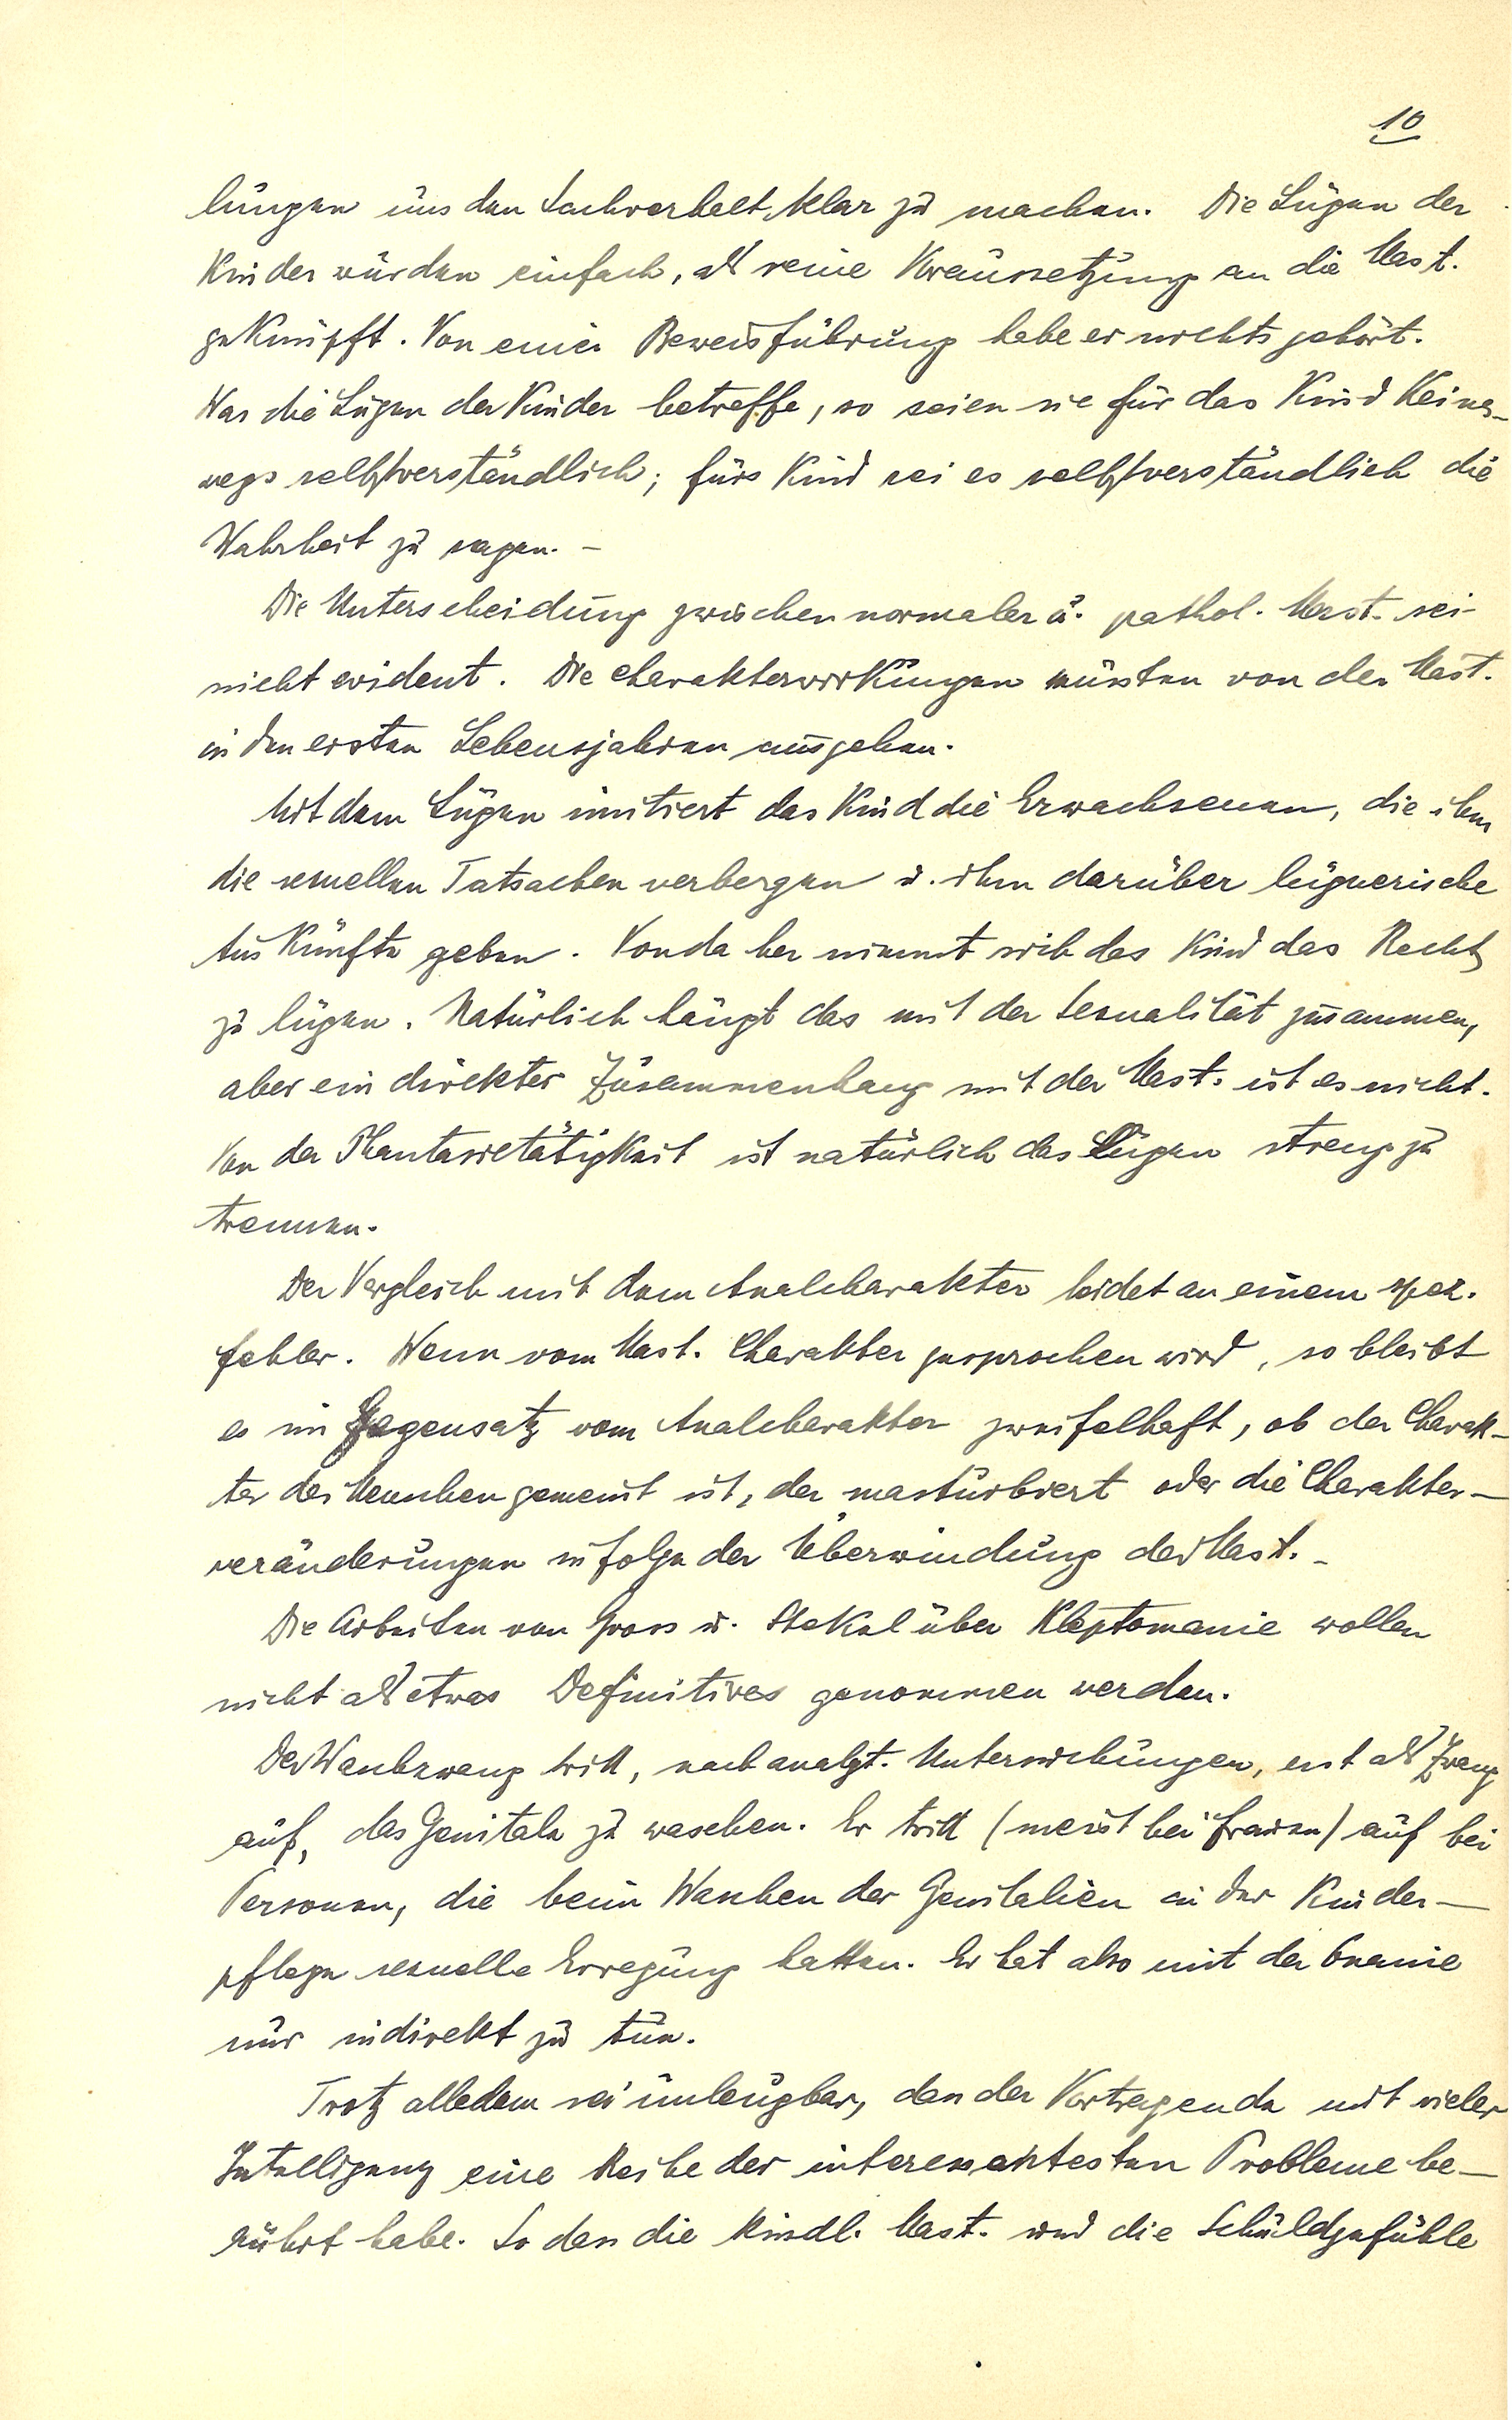 10
lungen uns den Sachverhalt klar zu machen. Die Lügen der
Kinder würden einfach, als seine Voraussetzung an die Mast.
geknüpft. Von einer Beweisführung habe er nichts gehört.
Was die Lügen der Kinder betreffe, so seien sie für das Kind keines-
wegs selbstverständlich; fürs Kind sei es selbstverständlich die
Wahrheit zu sagen. -
Die Unterscheidung zwischen normaler u. pathol. Mast. sei
nicht evident. Die Charakterwirkungen müssten von der Mast.
in den ersten Lebensjahren ausgehen.
Mit dem Lügen imitiert das Kind die Erwachsenen, die ihm
die sexuellen Tatsachen verbergen u. ihm darüber lügnerische
Auskünfte geben. Von da her nimmt sich das Kind das Recht
zu lügen. Natürlich hängt das mit der Sexualität zusammen,
aber ein direkter Zusammenhang mit der Mast. ist es nicht.
Von der Phantasietätigkeit ist natürlich das Lügen streng zu
trennen.
Der Vergleich mit dem Analcharakter leidet an einem spez.
Fehler. Wenn vom Mast. Charakter gesprochen wird, so bleibt
es im Gegensatz vom Analcharakter zweifelhaft, ob der Charak-
ter des Menschen gemeint ist, der masturbiert oder die Charakter-
veränderungen infolge der Überwindung der Mast. -
Die Arbeiten von Gross u. Stekel über Kleptomanie wollen
nicht als etwas Definitives genommen werden.
Der Waschzwang tritt, nach analyt. Untersuchungen, erst als Zwang
auf, das Genitale zu waschen. Er tritt (meist bei Frauen) auf bei
Personen, die beim Waschen der Genitalien in der Kinder-
pflege sexuelle Erregung hatten. Er hat also mit der Onanie
nur indirekt zu tun.
Trotz alledem sei unleugbar, dass der Vortragende mit vieler
Intelligenz eine Reihe der interessantesten Probleme be-
rührt habe. So dass die kindl. Mast. und die Schuldgefühle